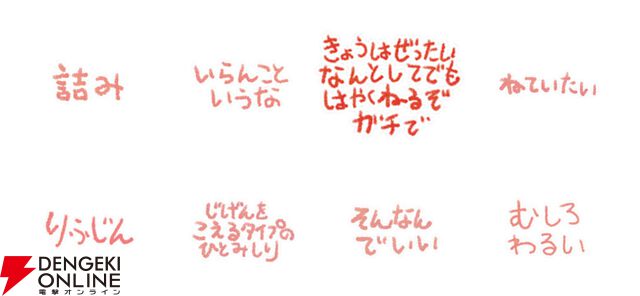 詰み
いらんこと
いうな
きょうはぜったい
なんとしてでも
はやくねーるぞ
ガチで
ねていたい
りふじん
じげんを
こえるタイプの
ひとみしり
そんなん
でいい
むしろ
わるい
DENGEKI
ONLINE
電撃オンライン